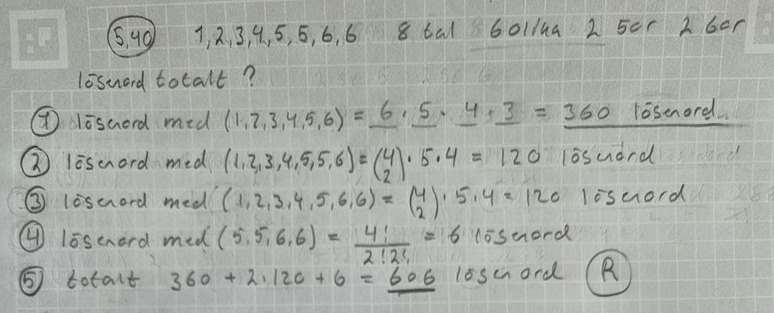 5,40 1,2,3,4,5,5,6,6 8 tal 6 olika 2 5or 2 6or
lösenord totalt ?
① lösenord med (1,2,3,4,5,6) = 6 · 5 · 4 · 3 = 360 lösenord.
② lösenord med (1,2,3,4,5,5,6) = (4 2) · 5 · 4 = 120 lösenord
③ lösenord med (1,2,3,4,5,6,6) = (4 2) · 5 · 4 = 120 lösenord
④ lösenord med (5,5,6,6) = 4! / 2! 2! = 6 lösenord
⑤ totalt 360 + 2·120 + 6 = 606 lösenord R